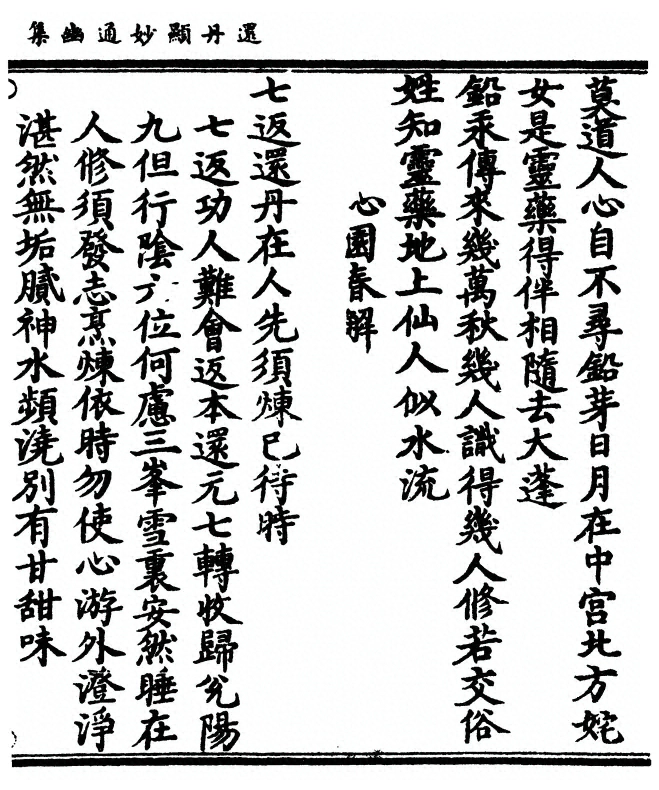 還丹顯妙通幽集
莫道人心自不尋鉛芽日月在中宮北方姹
女是靈藥得伴相隨去大蓬
鉛汞傳來幾萬秋幾人識得幾人修若交俗
姓知靈藥地上仙人似水流
心園春解
七返還丹在人先須煉已待時
七返功人難會返本還元七轉收歸兊陽
九但行陰六位何慮三峯雪裏安然睡在
人修須發志烹煉依時勿使心游外澄淨
湛然無垢膩神水頻澆別有甘甜味